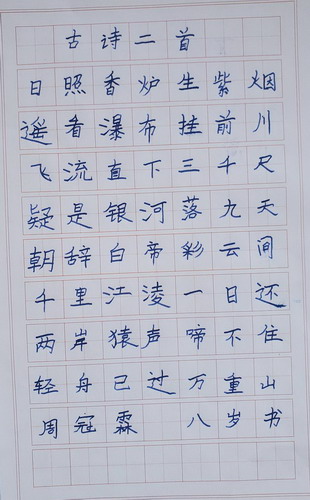 古诗二首
日照香炉生紫烟
遥看瀑布挂前川
飞流直下三千尺
疑是银河落九天
朝辞白帝彩云间
千里江凌一日还
两岸猿声啼不住
轻舟已过万重山
周冠霖 八岁书